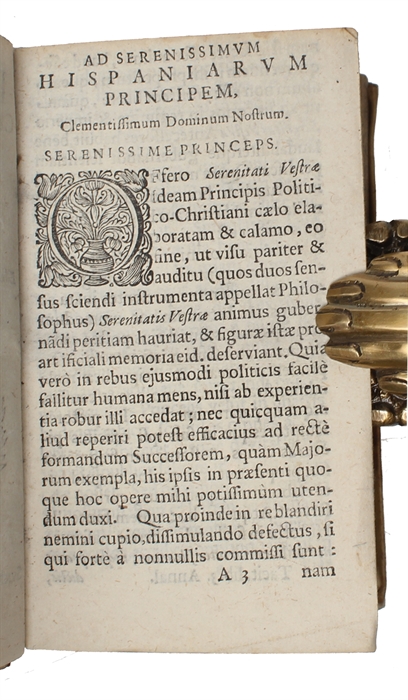 AD SERENISSIMVM
HISPANIARVM
PRINCIPEM,
Clementissimum Dominum Nostrum.
SERENISSIME PRINCEPS.
OFfero Serenitati Vestræ
Ideam Principis Politi-
co-Christiani cælo ela-
boratam & calamo, eo
fine, ut visu pariter &
auditu (quos duos sen-
sus sciendi instrumenta appellat Philo-
sophus) Serenitatis Vestræ animus guber
nãdi peritiam hauriat, & figuræ istæ pro
art ificiali memoria eid. deserviant. Quia
verò in rebus ejusmodi politicis facilè
fallitur humana mens, nisi ab experien-
tia robur illi accedat; nec quicquam a-
liud reperiri potest efficacius ad rectè
formandum Successorem, quàm Majo-
rum exempla, his ipsis in præsenti quo-
que hoc opere mihi potissimum uten-
dum duxi. Qua proinde in re blandiri
nemini cupio, dissimulando defectus, si
qui fortè à nonnullis commissi sunt:
A 3 nam